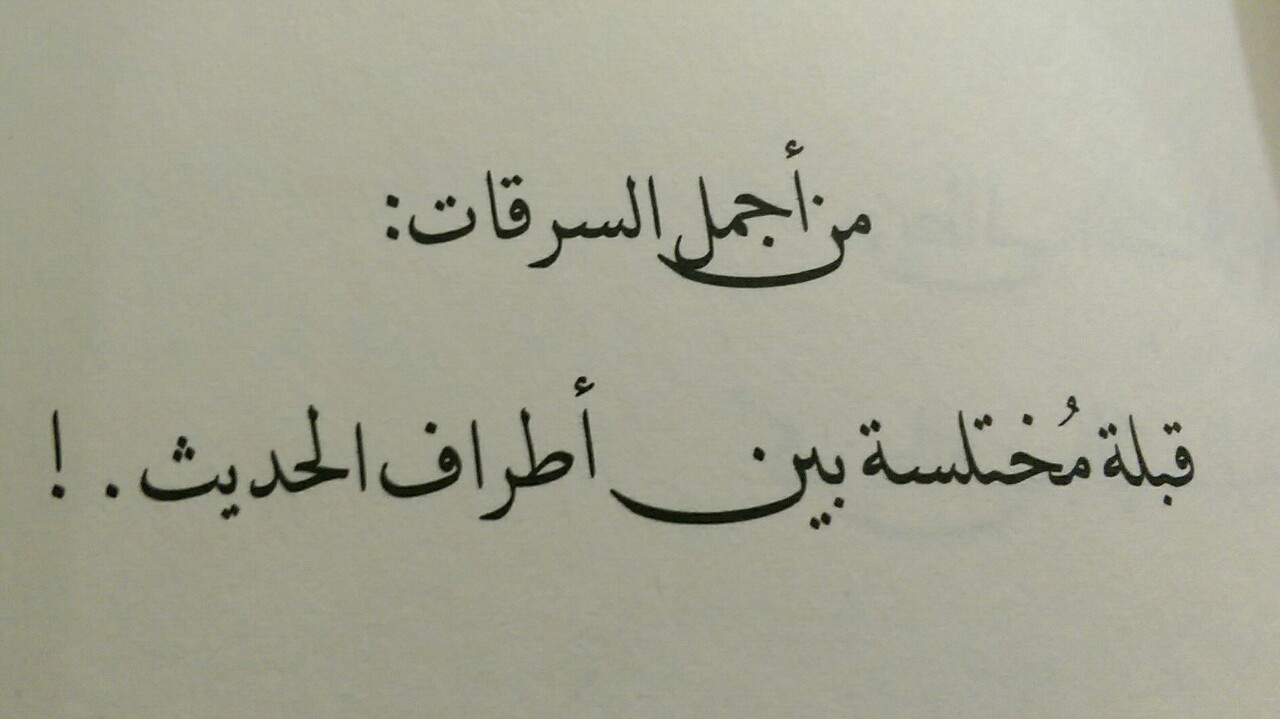 من أجمل السرقات:
قبلة مُختلسة بين أطراف الحديث . !